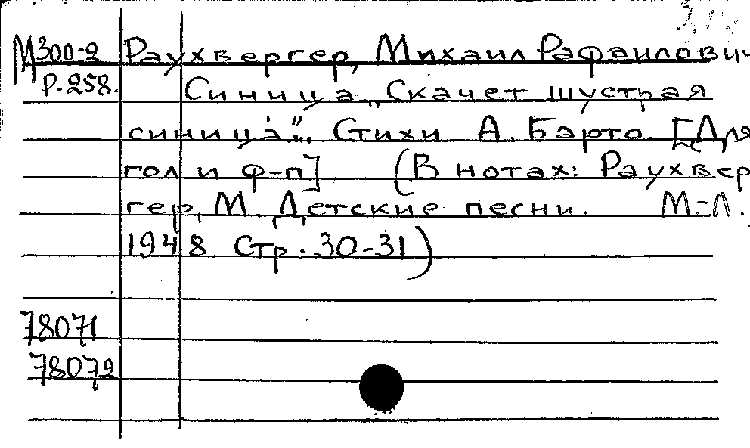 М300-2 Раухвергер, Михаил Рафаилович
Р-258. Синица „Скачет шустрая
синица". Стихи А. Барто. [Для
гол и ф-п] (В нотах: Раухвер
гер, М. Детские песни. М-Л.
1948 Стр. 30-31)
78071
78072